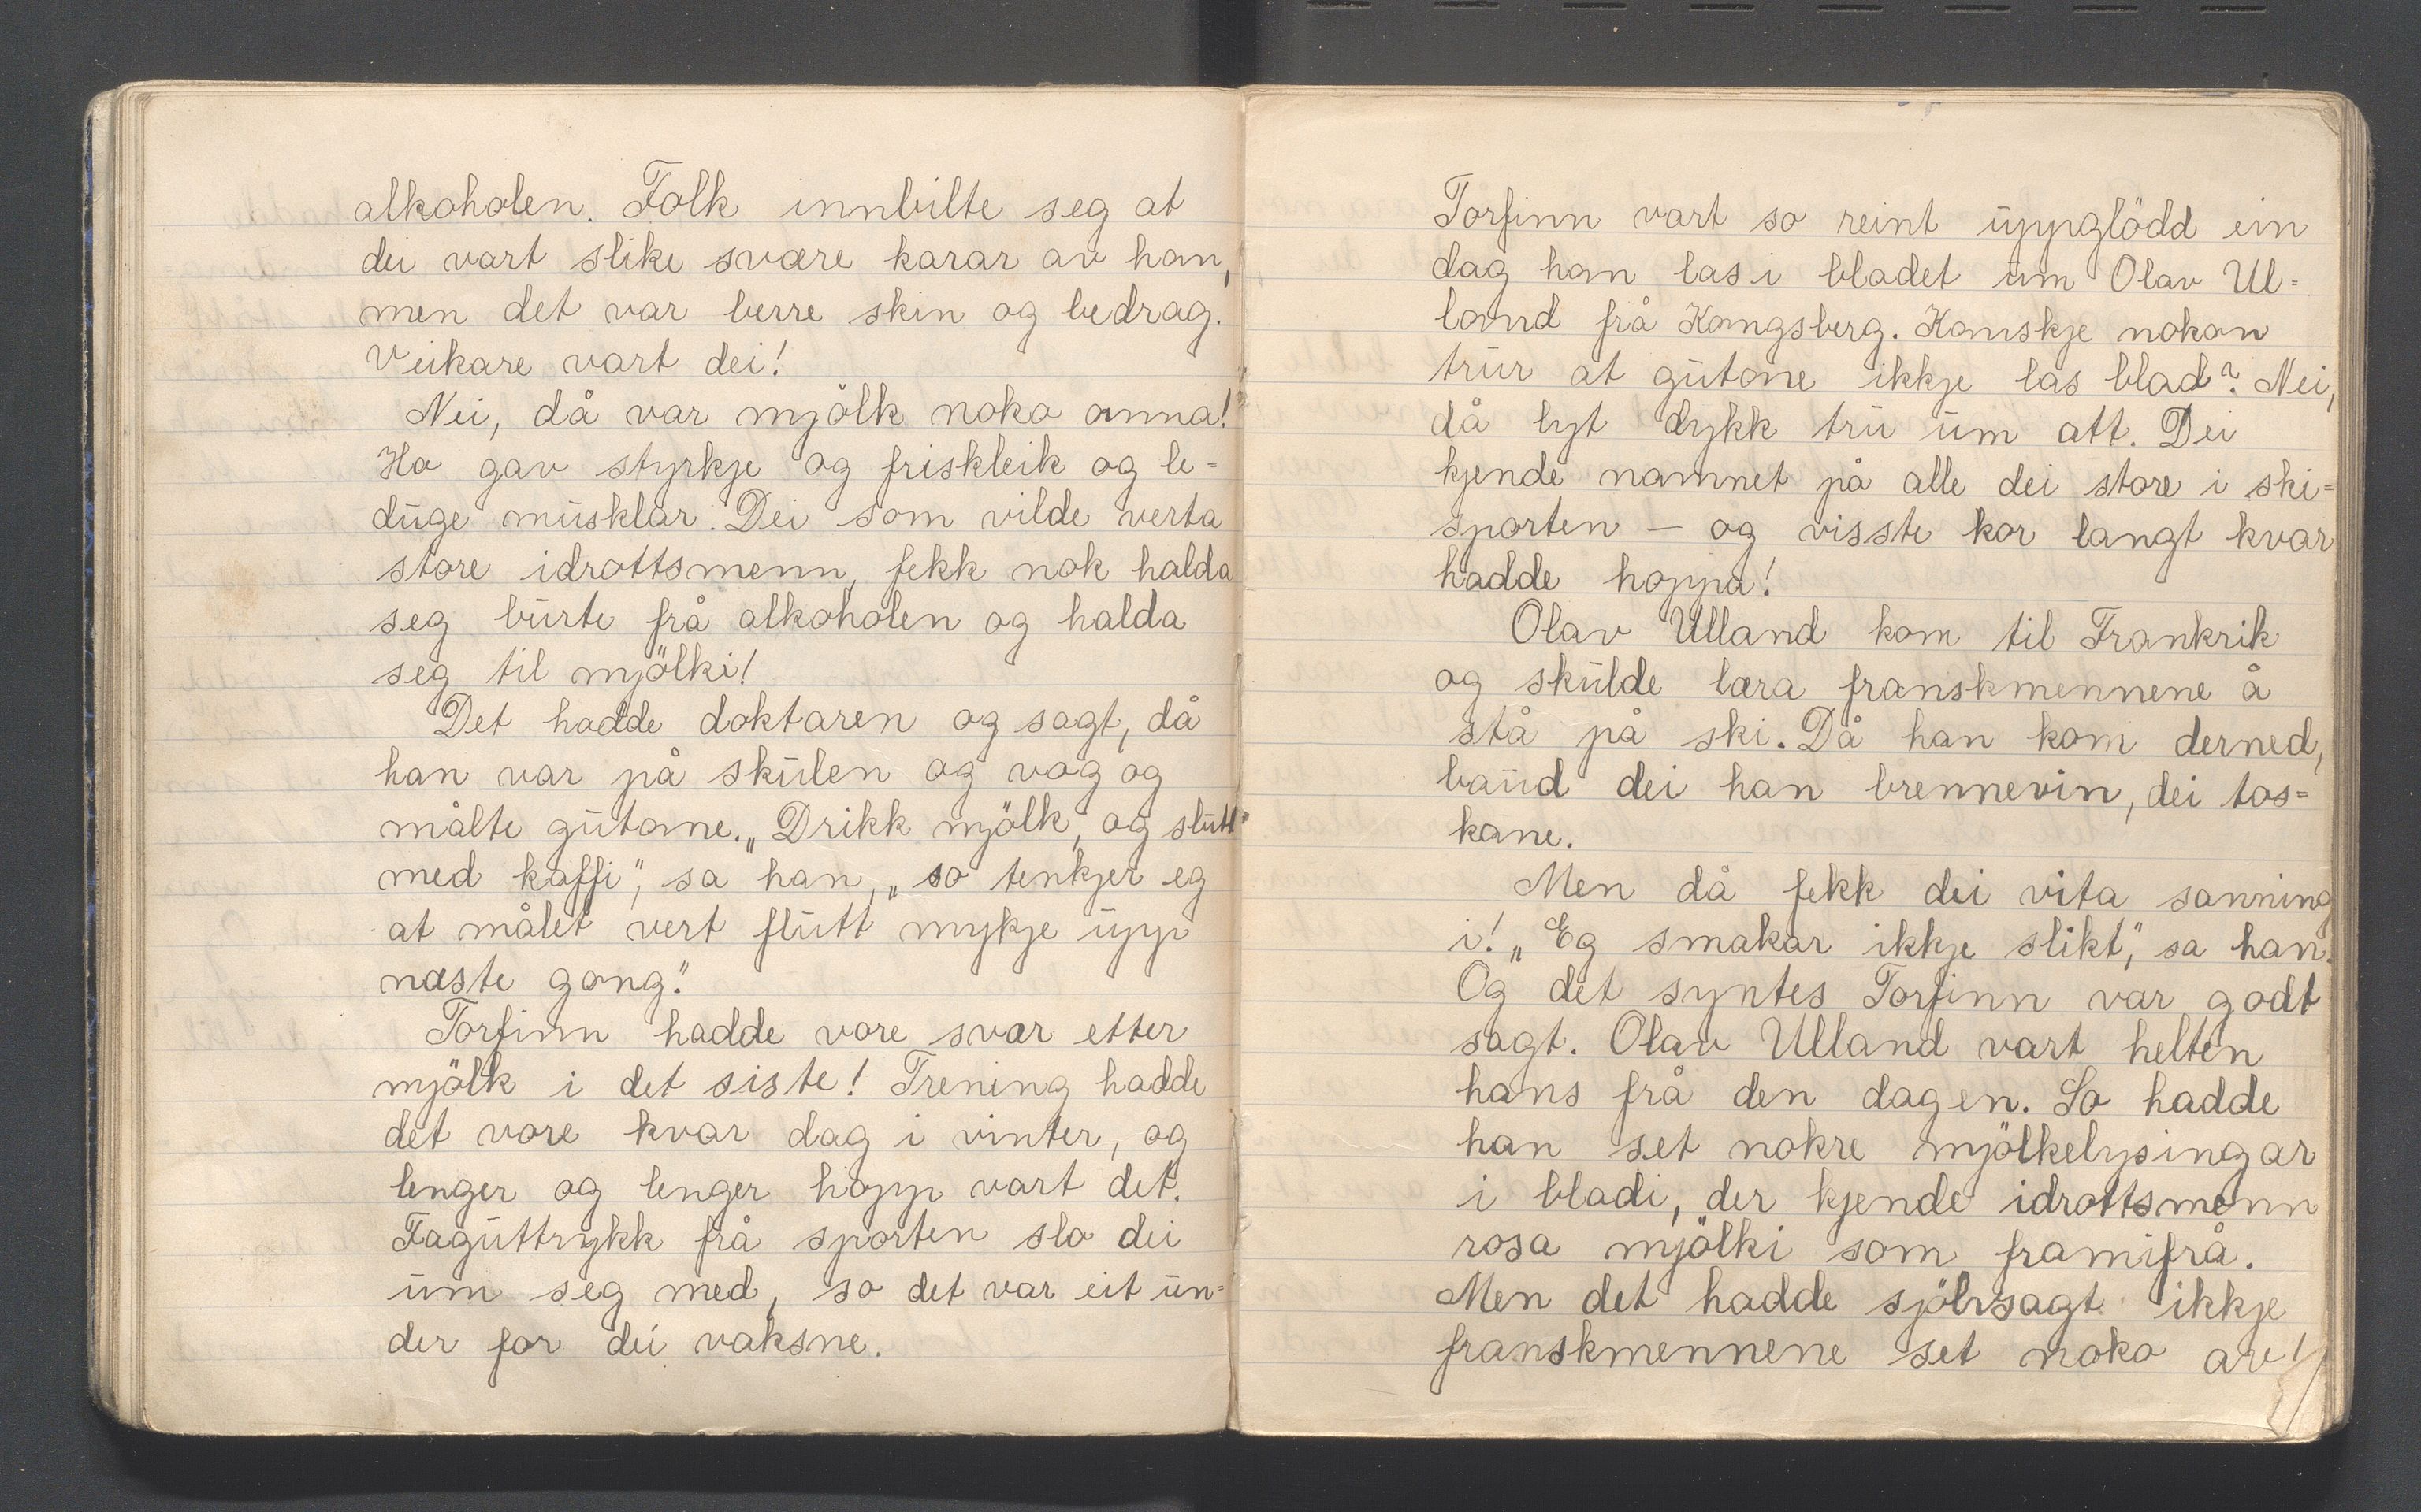 alkoholen. Folk innbilte seg at
dei vart slike svære karar av han,
men det var berre skin og bedrag.
Veikare vart dei!
Nei, då var mjölk noko anna!
Ho gav styrkje og friskleik og le=
duge musklar. Dei som vilde verta
store idrottsmenn, fekk nok halda
seg burte frå alkoholen og halda
seg til mjölki!
Det hadde doktaren og sagt, då
han var på skulen og vog og
målte gutane. „Drikk mjölk, og slutt
med kaffi", sa han, „so tenkjer eg
at målet vert flutt mykje upp
næste gong."
Torfinn hadde vore svær etter
mjölk i det siste! Trening hadde
det vore kvar dag i vinter, og
lenger og lenger hopp vart det.
Faguttrykk frå sporten slo dei
um seg med, so det var eit un=
der for dei vaksne.
Torfinn vart so reint uppglödd ein
dag han las i bladet um Olav Ul=
land frå Kongsberg. Kanskje nokon
trur at gutane ikkje las blad? Nei,
då lyt dykk tru um att. Dei
kjende namnet på alle dei store i ski=
sporten — og visste kor langt kvar
hadde hoppa!
Olav Ulland kom til Frankrik
og skulde læra franskmennene å
stå på ski. Då han kom derned,
baud dei han brennevin, dei tos=
kane.
Men då fekk dei vita sanning
i! „Eg smakar ikkje slikt", sa han.
Og det syntes Torfinn var godt
sagt. Olav Ulland vart helten
hans frå den dagen. So hadde
han set nokre mjölkelysingar
i bladi, der kjende idrottsmenn
rosa mjölki som framifrå.
Men det hadde sjölvsagt ikkje
franskmennene set noko av!